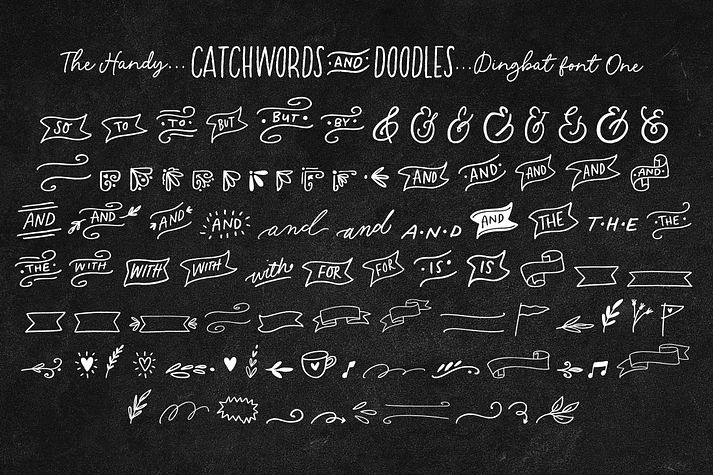 The Handy... CATCHWORDS AND DOODLES ...Dingbat font One
SO TO TO BUT BUT BY & & & & & & & &
AND AND AND AND AND
AND AND AND AND and and A·N·D AND THE T·H·E THE
THE WITH WITH WITH with FOR FOR IS IS